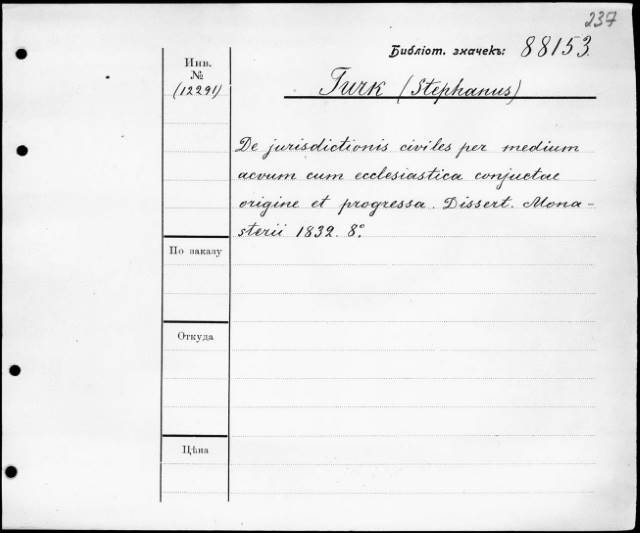 237
Библіот. значекъ: 88153
Инв.
№
(12291)
Turk (Stephanus)
De jurisdictionis civiles per medium
aevum cum ecclesiastica conjuctae
origine et progressa. Dissert. Mona-
sterii 1832. 8º.
По заказу
Откуда
Цѣна